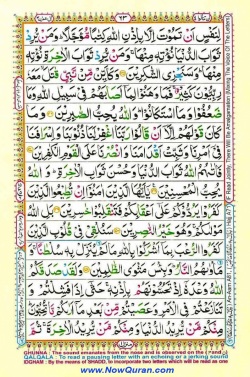 ٧٣
لِنَفْسٍ اَنْ تَمُوْتَ اِلَّا بِاِذْنِ اللّٰهِ كِتٰبًا مُّؤَجَّلًا ؕ وَمَنْ يُّرِدْ
ثَوَابَ الدُّنْيَا نُؤْتِهٖ مِنْهَا ۚ وَمَنْ يُّرِدْ ثَوَابَ الْاٰخِرَةِ نُؤْتِهٖ
مِنْهَا ؕ وَسَنَجْزِى الشّٰكِرِيْنَ وَكَاَيِّنْ مِّنْ نَّبِىٍّ قٰتَلَ ۙ مَعَهٗ
رِبِّيُّوْنَ كَثِيْرٌ ۚ فَمَا وَهَنُوْا لِمَاۤ اَصَابَهُمْ فِىْ سَبِيْلِ اللّٰهِ وَمَا
ضَعُفُوْا وَمَا اسْتَكَانُوْا ؕ وَاللّٰهُ يُحِبُّ الصّٰبِرِيْنَ وَمَا
كَانَ قَوْلَهُمْ اِلَّاۤ اَنْ قَالُوْا رَبَّنَا اغْفِرْ لَنَا ذُنُوْبَنَا وَاِسْرَافَنَا
فِىْۤ اَمْرِنَا وَثَبِّتْ اَقْدَامَنَا وَانْصُرْنَا عَلَى الْقَوْمِ الْكٰفِرِيْنَ
فَاٰتٰىهُمُ اللّٰهُ ثَوَابَ الدُّنْيَا وَحُسْنَ ثَوَابِ الْاٰخِرَةِ ؕ وَاللّٰهُ
يُحِبُّ الْمُحْسِنِيْنَ يٰۤاَيُّهَا الَّذِيْنَ اٰمَنُوْۤا اِنْ تُطِيْعُوا الَّذِيْنَ
كَفَرُوْا يَرُدُّوْكُمْ عَلٰٓى اَعْقَابِكُمْ فَتَنْقَلِبُوْا خٰسِرِيْنَ بَلِ اللّٰهُ
مَوْلٰىكُمْ ۚ وَهُوَ خَيْرُ النّٰصِرِيْنَ سَنُلْقِىْ فِىْ قُلُوْبِ الَّذِيْنَ
كَفَرُوا الرُّعْبَ بِمَاۤ اَشْرَكُوْا بِاللّٰهِ مَا لَمْ يُنَزِّلْ بِهٖ سُلْطٰنًا ۚ وَ
مَاْوٰىهُمُ النَّارُ ؕ وَبِئْسَ مَثْوَى الظّٰلِمِيْنَ وَلَقَدْ صَدَقَكُمُ
اللّٰهُ وَعْدَهٗۤ اِذْ تَحُسُّوْنَهُمْ بِاِذْنِهٖ ۚ حَتّٰۤى اِذَا فَشِلْتُمْ وَ
تَنَازَعْتُمْ فِى الْاَمْرِ وَعَصَيْتُمْ مِّنْۢ بَعْدِ مَاۤ اَرٰىكُمْ مَّا تُحِبُّوْنَ ؕ
مِنْكُمْ مَّنْ يُّرِيْدُ الدُّنْيَا وَمِنْكُمْ مَّنْ يُّرِيْدُ الْاٰخِرَةَ ۚ ثُمَّ
GHUNNA : The sound emanates from the nose and is observed on the
QALQALA : To read a pausing letter with an echoing or a jerking sound
IDGHAM : By the means of SHADD, to incorporate two letters which will be read as one
www.NowQuran.com